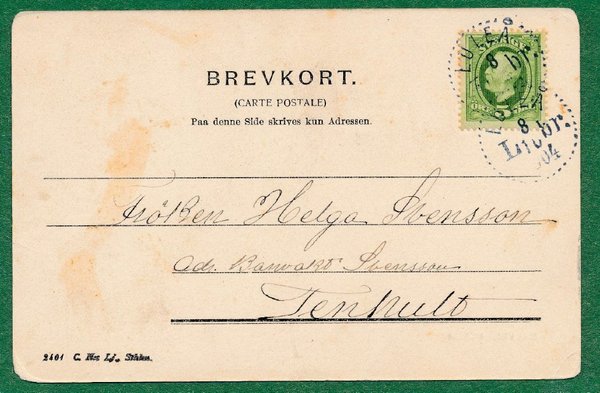 LULEÅ
8
BREVKORT.
(CARTE POSTALE)
Paa denne Side skrives kun Adressen.
8
Lbr.
04
Fröken Helga Svensson
Adr. Banvakt Svensson
Tenhult
2401 C. Stklm.